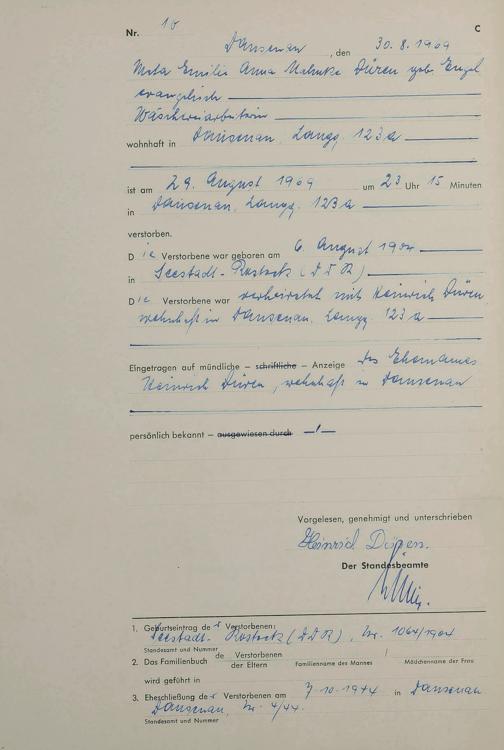 Nr. 10 C
Dausenau, den 30.8.1969
Meta Emilie Anna Mahnke Düren geb. Engel
evangelisch
Wäschereiarbeiterin
wohnhaft in Dausenau, Langg. 123a
ist am 29. August 1969 um 23 Uhr 15 Minuten
in Dausenau, Langg. 123a
verstorben.
Die Verstorbene war geboren am 6. August 1904
in Seestadt-Rostock (DDR)
Die Verstorbene war verheiratet mit Heinrich Düren
wohnhaft in Dausenau, Langg. 123a
Eingetragen auf mündliche – schriftliche – Anzeige des Ehemannes
Heinrich Düren, wohnhaft in Dausenau
persönlich bekannt – ausgewiesen durch —/—
Vorgelesen, genehmigt und unterschrieben
Heinrich Düren.
Der Standesbeamte
1. Geburtseintrag der Verstorbenen:
Seestadt-Rostock (DDR), Nr. 1064/1904
Standesamt und Nummer
2. Das Familienbuch de Verstorbenen
der Eltern Familienname des Mannes / Mädchenname der Frau
wird geführt in
3. Eheschließung der Verstorbenen am 7.10.1944 in Dausenau
Dausenau, Nr. 4/44.
Standesamt und Nummer